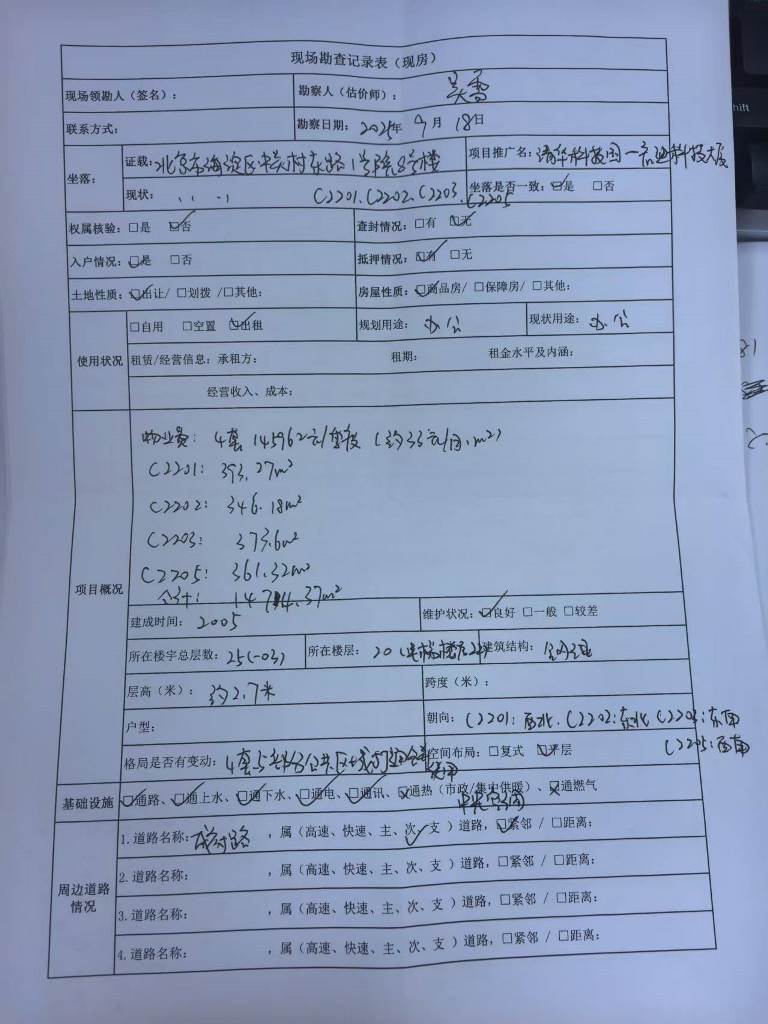 现场勘查记录表（现房）
现场领勘人（签名）： 勘察人（估价师）： 吴雪
联系方式： 勘察日期：2025年9月18日
坐落： 证载：北京市海淀区中关村东路1号院8号楼 项目推广名：清华科技园—科技大厦
现状： C2201.C2202.C2203.C2205 坐落是否一致：☑是 □否
权属核验：□是 ☑否 查封情况：□有 ☑无
入户情况：☑是 □否 抵押情况：☑有 □无
土地性质：☑出让/ □划拨 /□其他： 房屋性质：☑商品房/ □保障房/ □其他：
使用状况 □自用 □空置 ☑出租 规划用途：办公 现状用途：办公
租赁/经营信息：承租方： 租期： 租金水平及内涵：
经营收入、成本：
项目概况
物业费： 4套 145962元/季度（约33元/月.m²）
C2201： 393.27m²
C2202： 346.18m²
C2203： 373.6m²
C2205： 361.32m²
合计： 1474.37m²
建成时间：2005 维护状况：☑良好 □一般 □较差
所在楼宇总层数：25(-03) 所在楼层：20 建筑结构：
层高（米）：约2.7米 跨度（米）：
户型： 朝向：C2201：西北.C2202：东北 C2203：东南
C2205：西南
格局是否有变动：4套与部分公共区域打通合并使用 空间布局：□复式 ☑平层
基础设施 ☑通路、☑通上水、☑通下水、☑通电、☑通讯、☑通热（市政/集中供暖）、☒通燃气
中央空调
周边道路情况
1.道路名称：成府路 ，属（高速、快速、主、次、支 ）道路，☑紧邻 / □距离：
2.道路名称： ，属（高速、快速、主、次、支 ）道路，□紧邻 / □距离：
3.道路名称： ，属（高速、快速、主、次、支 ）道路，□紧邻 / □距离：
4.道路名称： ，属（高速、快速、主、次、支 ）道路，□紧邻 / □距离：
shift